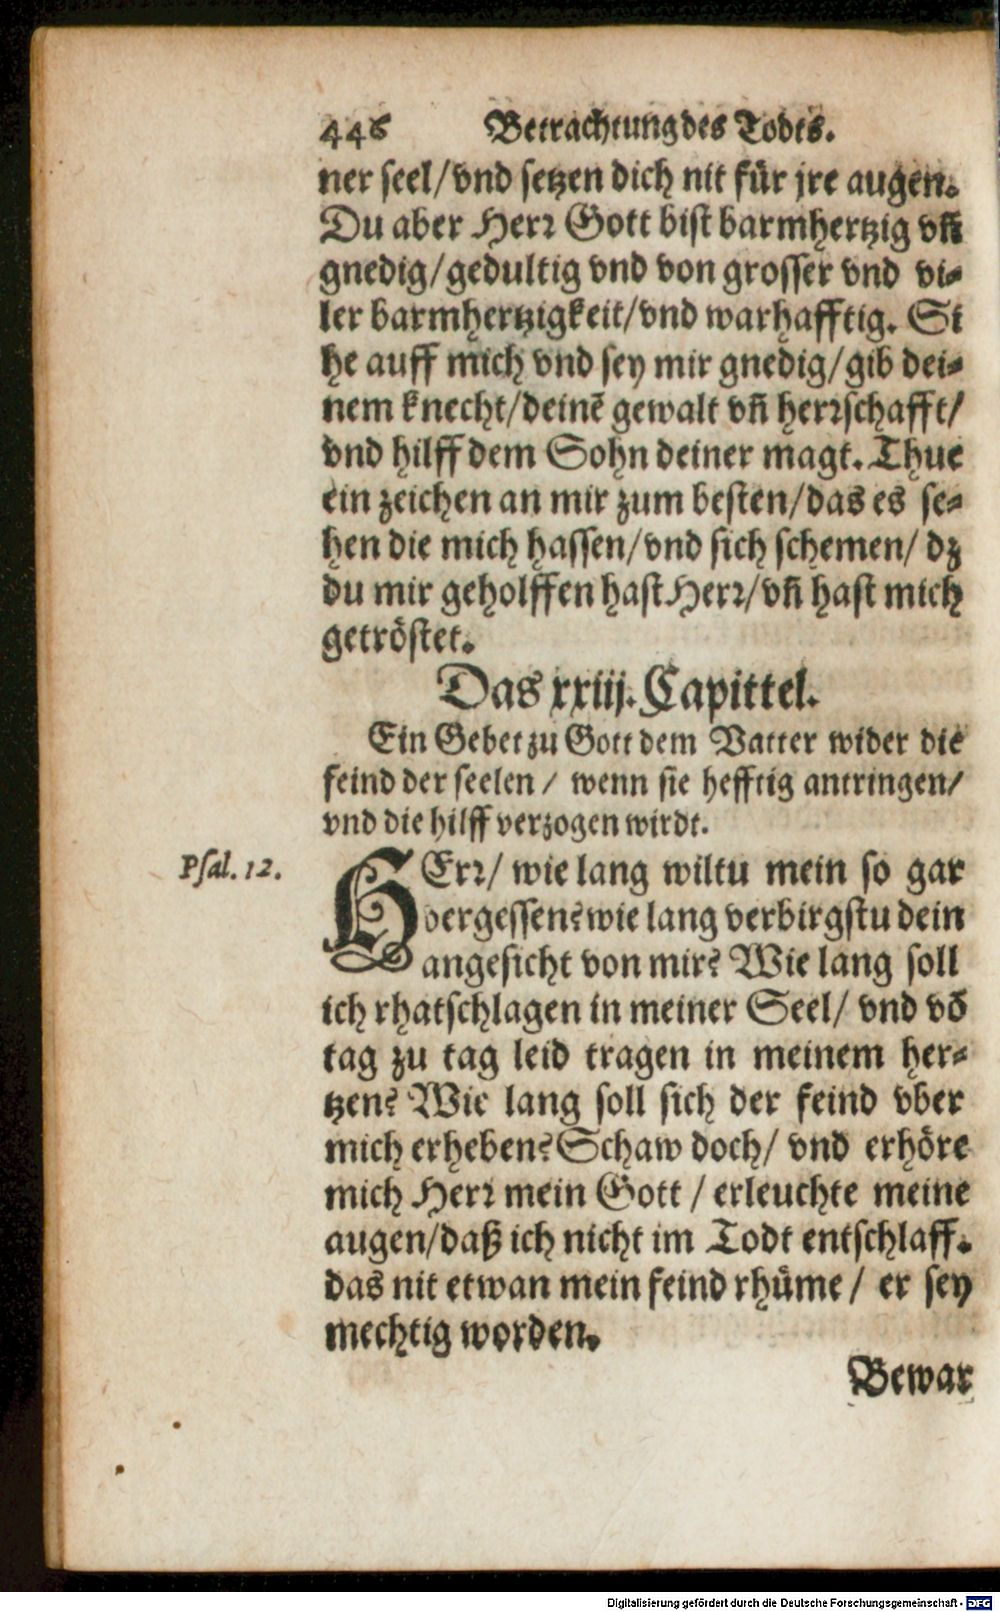 446 Betrachtung des Todts.
ner seel/vnd setzen dich nit für jre augen.
Du aber Herr Gott bist barmhertzig vñ
gnedig/gedultig vnd von grosser vnd vi-
ler barmhertzigkeit/vnd warhafftig. Si
he auff mich vnd sey mir gnedig/gib dei-
nem knecht/deinẽ gewalt vñ herrschafft/
vnd hilff dem Sohn deiner magt. Thue
ein zeichen an mir zum besten/das es se-
hen die mich hassen/vnd sich schemen/ dz
du mir geholffen hast Herr/vñ hast mich
getröstet.
Das xxiij. Capittel.
Ein Gebet zu Gott dem Vatter wider die
feind der seelen/ wenn sie hefftig antringen/
vnd die hilff verzogen wirdt.
Psal. 12.
HErr/ wie lang wiltu mein so gar
vergessen? wie lang verbirgstu dein
angesicht von mir? Wie lang soll
ich rhatschlagen in meiner Seel/ vnd võ
tag zu tag leid tragen in meinem her-
tzen? Wie lang soll sich der feind vber
mich erheben? Schaw doch/ vnd erhöre
mich Herr mein Gott/ erleuchte meine
augen/daß ich nicht im Todt entschlaff.
das nit etwan mein feind rhüme/ er sey
mechtig worden.
Bewar
Digitalisierung gefördert durch die Deutsche Forschungsgemeinschaft - DFG